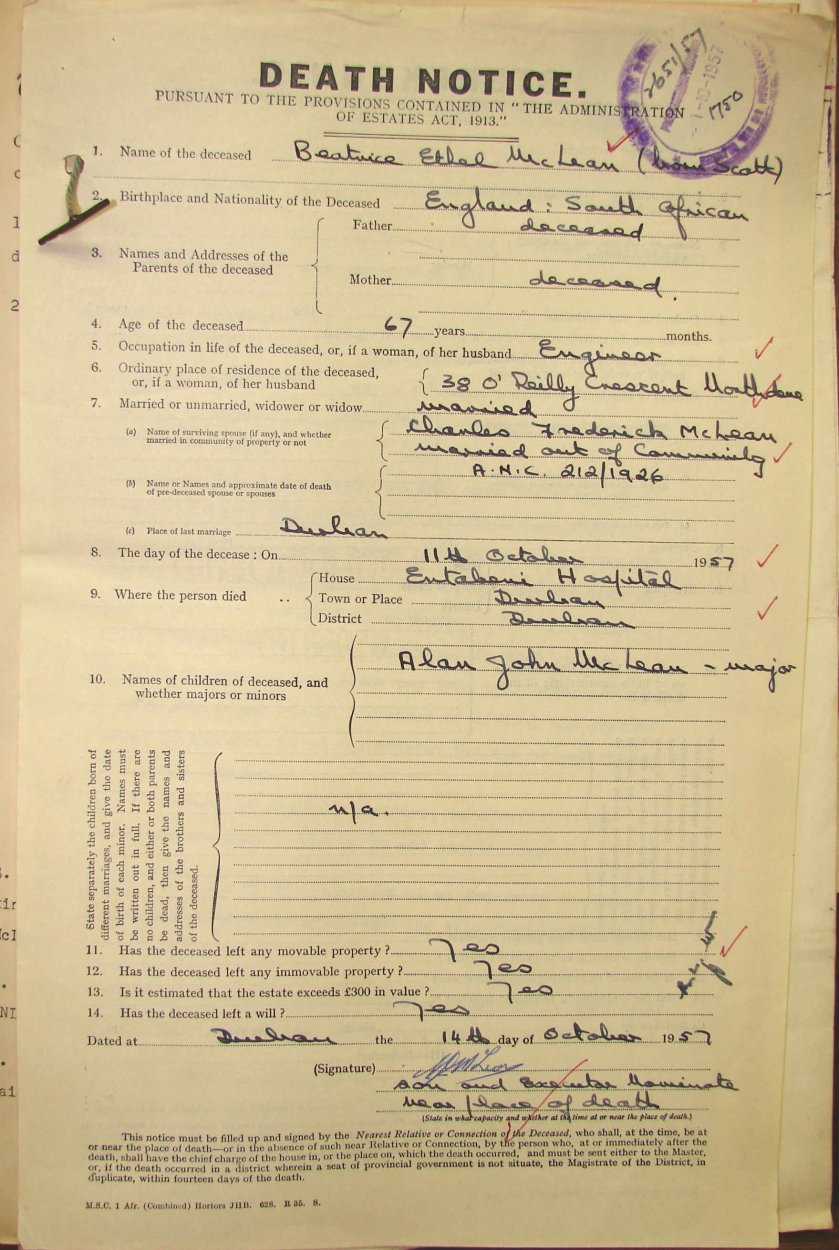 DEATH NOTICE.
PURSUANT TO THE PROVISIONS CONTAINED IN "THE ADMINISTRATION
OF ESTATES ACT, 1913."
2651/57
1750
1. Name of the deceased Beatrice Ethel McLean (born Scott)
2. Birthplace and Nationality of the Deceased England : South African
Father deceased
3. Names and Addresses of the
Parents of the deceased
Mother deceased.
4. Age of the deceased 67 years months.
5. Occupation in life of the deceased, or, if a woman, of her husband Engineer
6. Ordinary place of residence of the deceased,
or, if a woman, of her husband 38 O'Reilly Crescent Northdene
7. Married or unmarried, widower or widow married
(a) Name of surviving spouse (if any), and whether
married in community of property or not
Charles Frederick McLean
married out of Community
A.N.C. 212/1926
(b) Name or Names and approximate date of death
of pre-deceased spouse or spouses
(c) Place of last marriage Durban
8. The day of the decease : On 11th October 1957
9. Where the person died ..
House Entabeni Hospital
Town or Place Durban
District Durban
10. Names of children of deceased, and
whether majors or minors
Alan John McLean - major
State separately the children born of
different marriages, and give the date
of birth of each minor. Names must
be written out in full. If there are
no children, and either or both parents
be dead, then give the names and
addresses of the brothers and sisters
of the deceased.
n/a.
11. Has the deceased left any movable property ? Yes
12. Has the deceased left any immovable property ? Yes
13. Is it estimated that the estate exceeds £300 in value ? Yes
14. Has the deceased left a will ? Yes
Dated at Durban the 14th day of October 1957
(Signature)
son and Executor Nominate
near place of death
(State in what capacity and whether at the time at or near the place of death.)
This notice must be filled up and signed by the Nearest Relative or Connection of the Deceased, who shall, at the time, be at
or near the place of death—or in the absence of such near Relative or Connection, by the person who, at or immediately after the
death, shall have the chief charge of the house in, or the place on, which the death occurred, and must be sent either to the Master,
or, if the death occurred in a district wherein a seat of provincial government is not situate, the Magistrate of the District, in
duplicate, within fourteen days of the death.
M.S.C. 1 Afr. (Combined) Hortors JHB. 628. R 35. S.